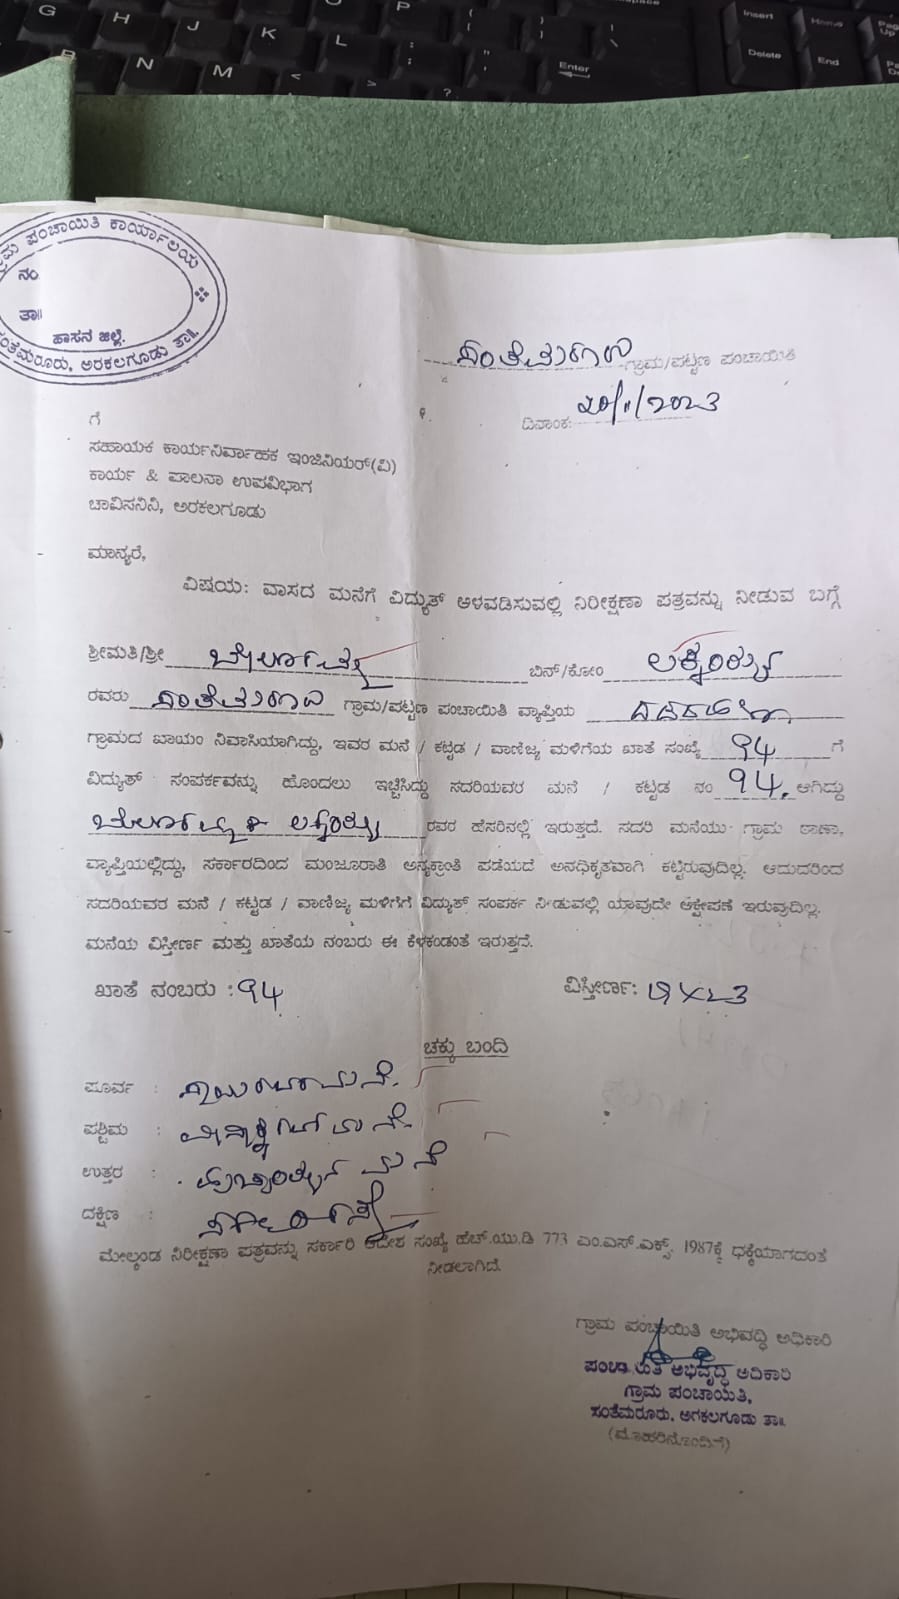 G H J K L P
N M < > ? : " Enter Insert Home Page Up Delete End
ಗ್ರಾಮ ಪಂಚಾಯಿತಿ ಕಾರ್ಯಾಲಯ
ನಂ
ತಾ॥
ಹಾಸನ ಜಿಲ್ಲೆ.
ಸಂತೆಮರೂರು, ಅರಕಲಗೂಡು ತಾ॥
ಸಂತೆಮರೂರು ಗ್ರಾಮ/ಪಟ್ಟಣ ಪಂಚಾಯಿತಿ
ದಿನಾಂಕ: 20/11/2023
ಗೆ
ಸಹಾಯಕ ಕಾರ್ಯನಿರ್ವಾಹಕ ಇಂಜಿನಿಯರ್(ವಿ)
ಕಾರ್ಯ & ಪಾಲನಾ ಉಪವಿಭಾಗ
ಚಾವಿಸನಿನಿ, ಅರಕಲಗೂಡು
ಮಾನ್ಯರೆ,
ವಿಷಯ: ವಾಸದ ಮನೆಗೆ ವಿದ್ಯುತ್ ಅಳವಡಿಸುವಲ್ಲಿ ನಿರೀಕ್ಷಣಾ ಪತ್ರವನ್ನು ನೀಡುವ ಬಗ್ಗೆ
ಶ್ರೀಮತಿ/ಶ್ರೀ ಬಿನ್/ಕೋಂ
ರವರು ಸಂತೆಮರೂರು ಗ್ರಾಮ/ಪಟ್ಟಣ ಪಂಚಾಯಿತಿ ವ್ಯಾಪ್ತಿಯ
ಗ್ರಾಮದ ಖಾಯಂ ನಿವಾಸಿಯಾಗಿದ್ದು, ಇವರ ಮನೆ / ಕಟ್ಟಡ / ವಾಣಿಜ್ಯ ಮಳಿಗೆಯ ಖಾತೆ ಸಂಖ್ಯೆ 94 ಗೆ
ವಿದ್ಯುತ್ ಸಂಪರ್ಕವನ್ನು ಹೊಂದಲು ಇಚ್ಚಿಸಿದ್ದು ಸದರಿಯವರ ಮನೆ / ಕಟ್ಟಡ ನಂ 94. ಆಗಿದ್ದು
ರವರ ಹೆಸರಿನಲ್ಲಿ ಇರುತ್ತದೆ. ಸದರಿ ಮನೆಯು ಗ್ರಾಮ ಠಾಣಾ,
ವ್ಯಾಪ್ತಿಯಲ್ಲಿದ್ದು, ಸರ್ಕಾರದಿಂದ ಮಂಜೂರಾತಿ ಅನ್ಯಕ್ರಾಂತಿ ಪಡೆಯದೆ ಅನಧಿಕೃತವಾಗಿ ಕಟ್ಟಿರುವುದಿಲ್ಲ. ಆದುದರಿಂದ
ಸದರಿಯವರ ಮನೆ / ಕಟ್ಟಡ / ವಾಣಿಜ್ಯ ಮಳಿಗೆಗೆ ವಿದ್ಯುತ್ ಸಂಪರ್ಕ ನೀಡುವಲ್ಲಿ ಯಾವುದೇ ಆಕ್ಷೇಪಣೆ ಇರುವುದಿಲ್ಲ.
ಮನೆಯ ವಿಸ್ತೀರ್ಣ ಮತ್ತು ಖಾತೆಯ ನಂಬರು ಈ ಕೆಳಕಂಡಂತೆ ಇರುತ್ತದೆ.
ಖಾತೆ ನಂಬರು : 94 ವಿಸ್ತೀರ್ಣ:
ಚಕ್ಕು ಬಂದಿ
ಪೂರ್ವ : ಮನೆ.
ಪಶ್ಚಿಮ : ಮನೆ.
ಉತ್ತರ : ಮನೆ
ದಕ್ಷಿಣ :
ಮೇಲ್ಕಂಡ ನಿರೀಕ್ಷಣಾ ಪತ್ರವನ್ನು ಸರ್ಕಾರಿ ಆದೇಶ ಸಂಖ್ಯೆ ಹೆಚ್.ಯು.ಡಿ 773 ಎಂ.ಎನ್.ಎಕ್ಸ್. 1987ಕ್ಕೆ ಧಕ್ಕೆಯಾಗದಂತೆ
ನೀಡಲಾಗಿದೆ.
ಗ್ರಾಮ ಪಂಚಾಯಿತಿ ಅಭಿವದ್ಧಿ ಅಧಿಕಾರಿ
ಅಭಿವೃದ್ಧಿ ಅದಿಕಾರಿ
ಗ್ರಾಮ ಪಂಚಾಯಿತಿ,
ಸಂತೆಮರೂರು, ಅಗಕಲಗೂಡು ತಾ॥
(ಮೊಹರಿನೊಂದಿಗೆ)